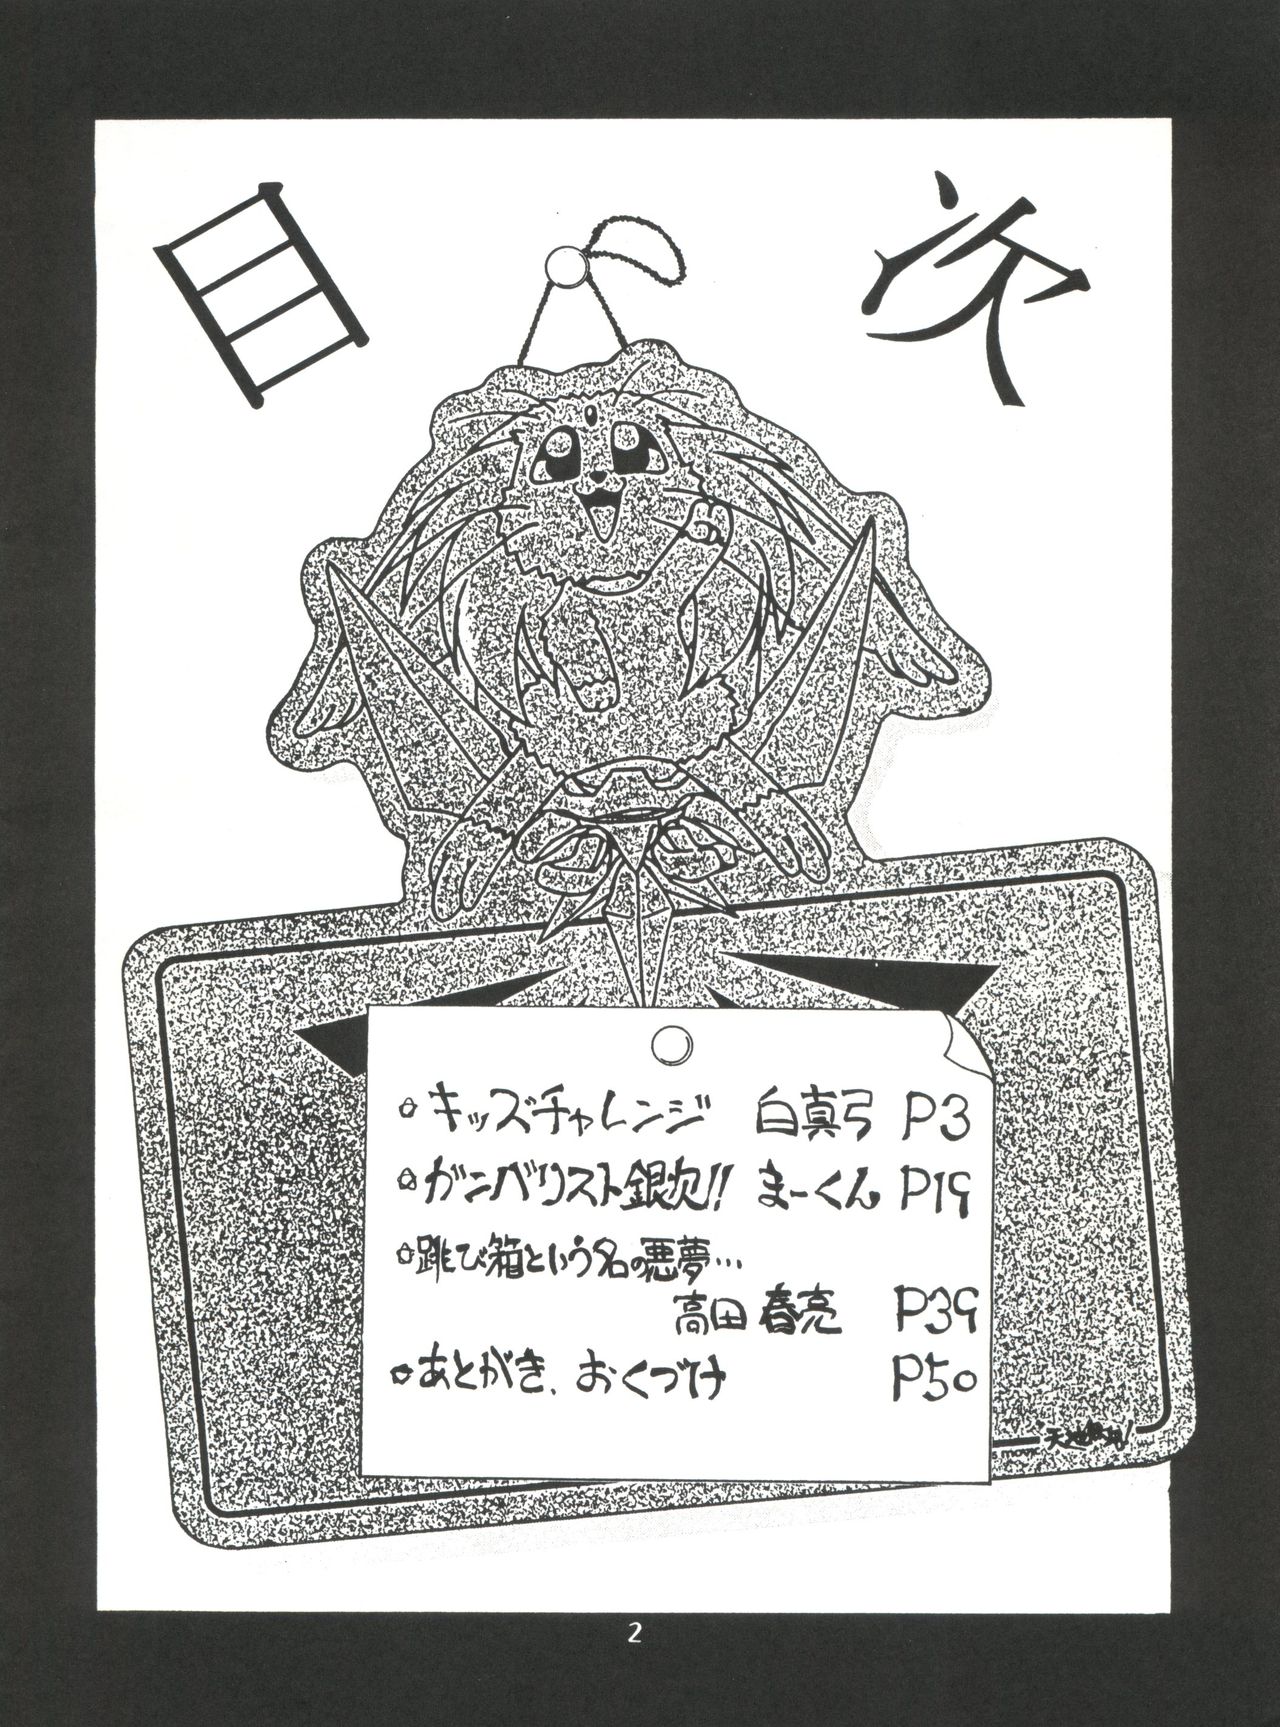 目次
キッズチャレンジ 白真弓 P3
ガンバリスト銀次!! まーくん P19
跳び箱という名の悪夢…
高田 春亮 P39
あとがき、おくづけ P50
天地無用!
2